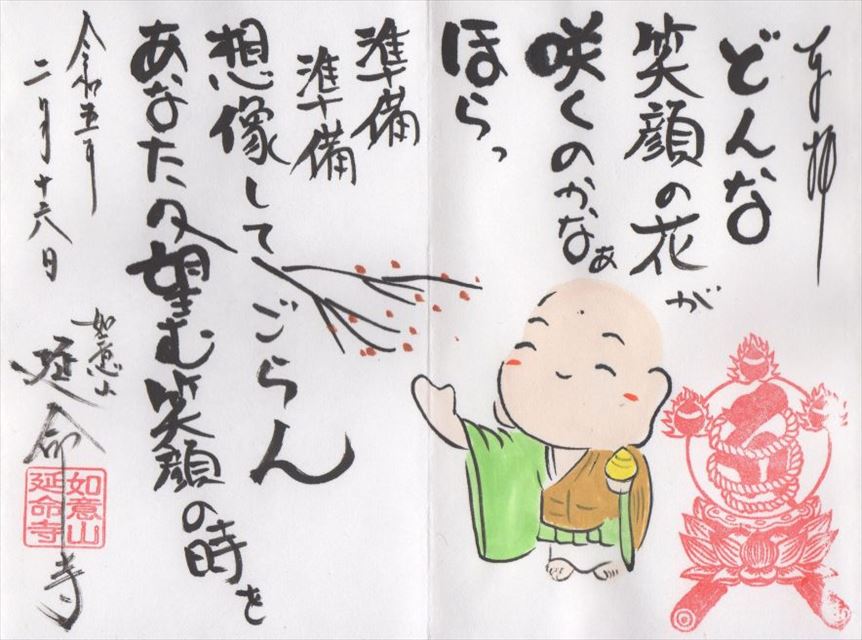 奉拝
どんな
笑顔の花が
咲くのかなぁ
ほらっ
準備
準備
想像してごらん
あなたの望む笑顔の時を
令和五年
二月十六日
如意山
延命寺
如意山
延命寺